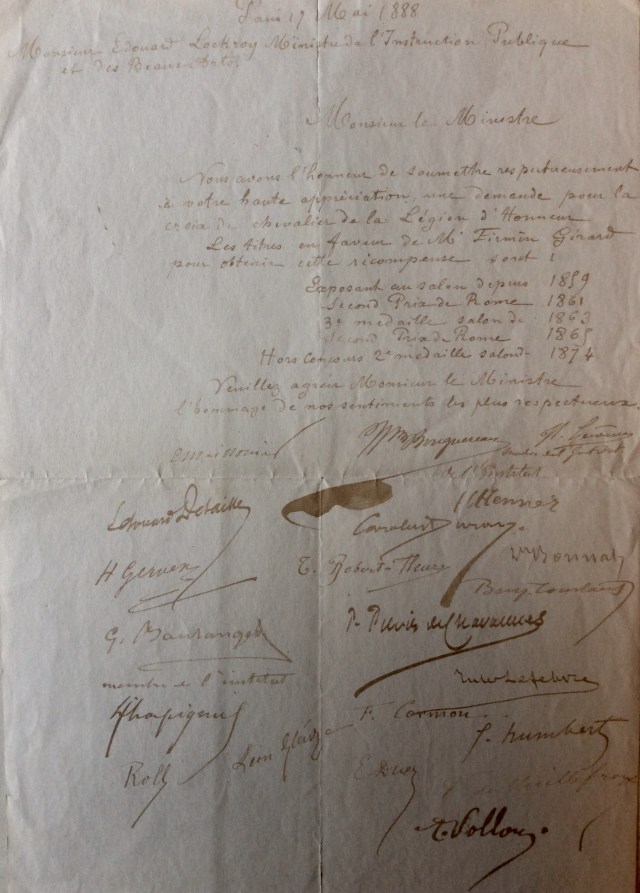 Paris 17 Mai 1888
Monsieur Edouard Lockroy Ministre de l'Instruction Publique
et des Beaux Arts
Monsieur le Ministre
Nous avons l'honneur de soumettre respectueusement
à votre haute appréciation, une demande pour la
croix de chevalier de la Légion d'Honneur
Les titres en faveur de Mr Firmin Girard
pour obtenir cette récompense sont :
Exposant au salon depuis 1859
Second Prix de Rome 1861
3e médaille salon de 1863
Second Prix de Rome 1865
Hors Concours 2e médaille salon de 1874
Veuillez agréer Monsieur le Ministre
l'hommage de nos sentiments les plus respectueux.
EMeissonier Wm Bouguereau
de l'Institut
Edouard Detaille JJHenner
Carolus Duran
H Gervex T. Robert-Fleury Ln Bonnat
Benj Constant
G. Boulanger P. Puvis de Chavannes
membre de l'institut Jules Lefebvre
HHarpignies F. Cormon
Roll Leon Glaize F. Humbert
E Duez
A. Vollon.